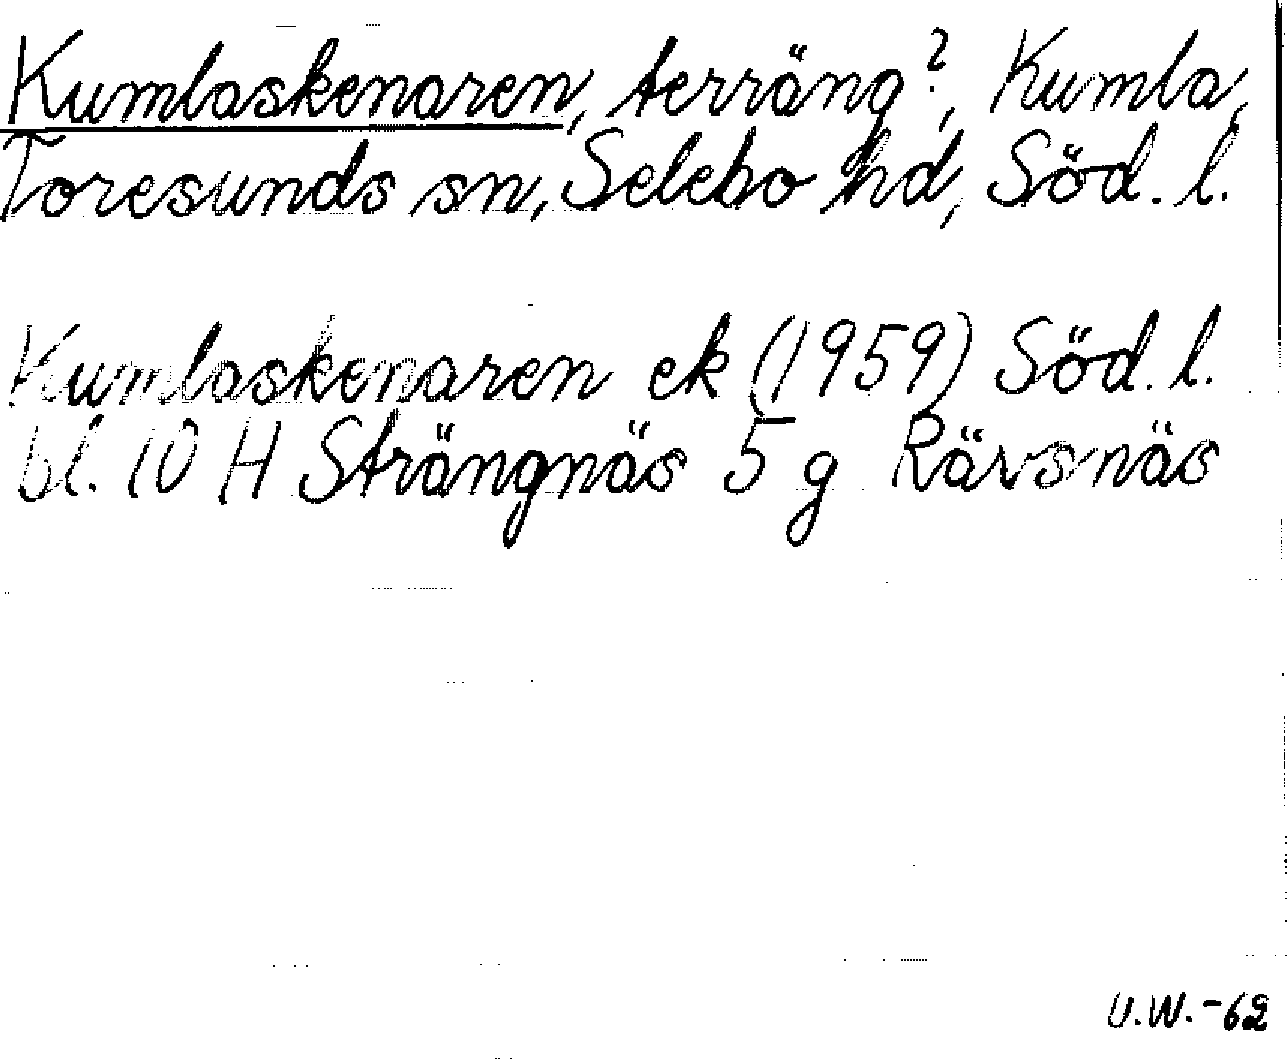 Kumlaskenaren, terräng?, Kumla,
Toresunds sn, Selebo hd, Söd. l.
Kumlaskenaren ek (1959) Söd. l.
bl. 10 H Strängnäs 5 g Rävsnäs
U.W.-62